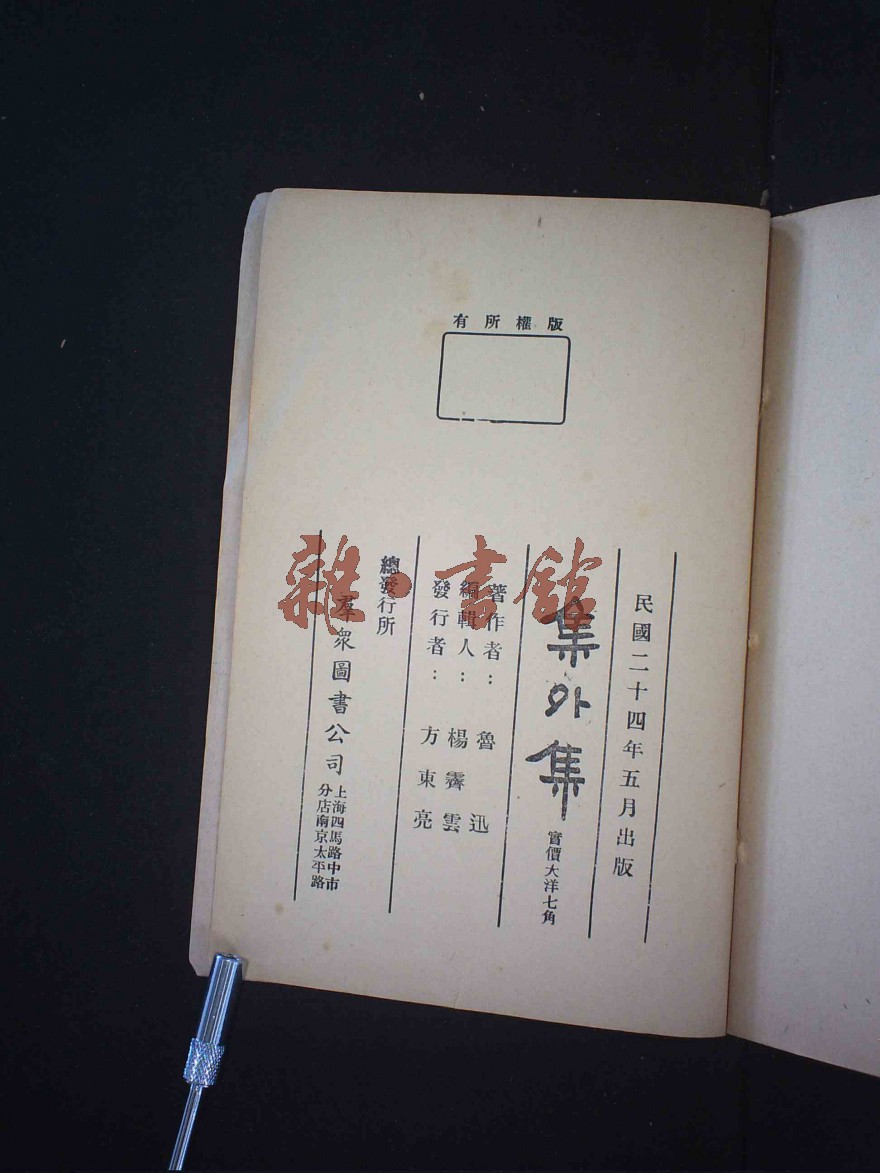 版權所有
民國二十四年五月出版
集外集
實價大洋七角
著作者：魯迅
編輯人：楊霽雲
發行者：方東亮
總發行所
羣衆圖書公司
上海四馬路中市
分店南京太平路
雜·書館